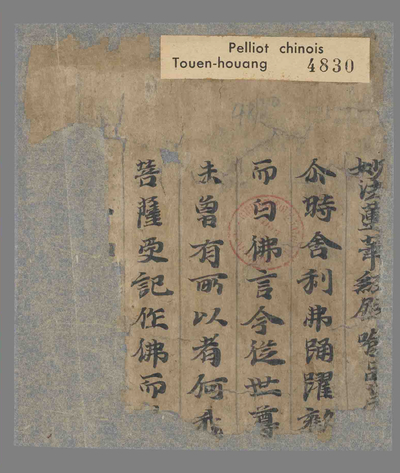 Pelliot chinois
Touen-houang 4830
妙法蓮華經譬喻品第
尒時舍利弗踊躍歡
而白佛言今從世尊
未曾有所以者何我
菩薩受記作佛而